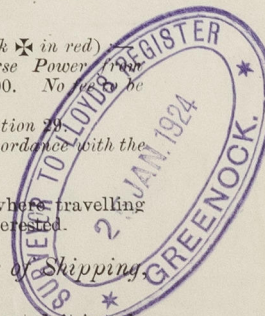 k ✠ in red) :—
rse Power from
00. No fee to be
ction 29.
cordance with the
where travelling
terested.
of Shipping,
SURVEYOR TO LLOYDS REGISTER
JAN. 1924
GREENOCK.